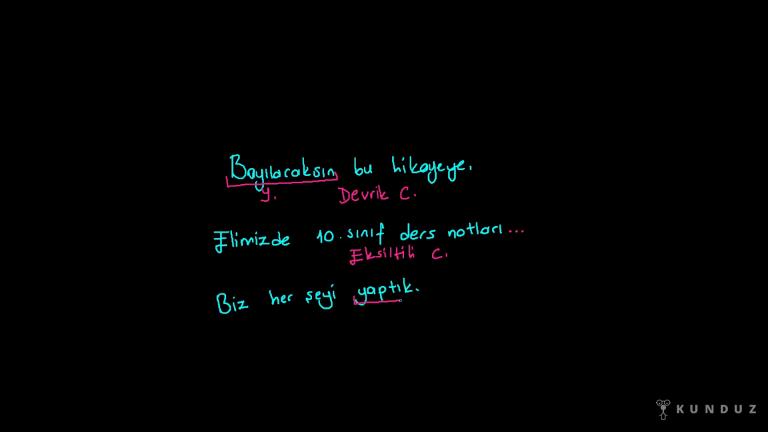 Bayılacaksın bu hikayeye.
y. Devrik C.
Elimizde 10. sınıf ders notları...
Eksiltili C.
Biz her şeyi yaptık.
KUNDUZ